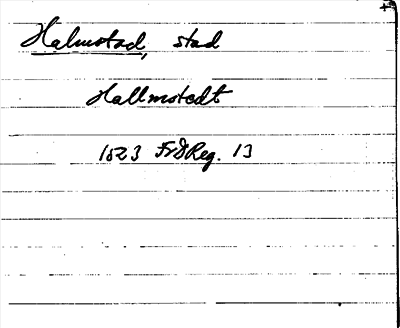 Halmstad, stad
Hallmstedt
1523 FrDReg. 13